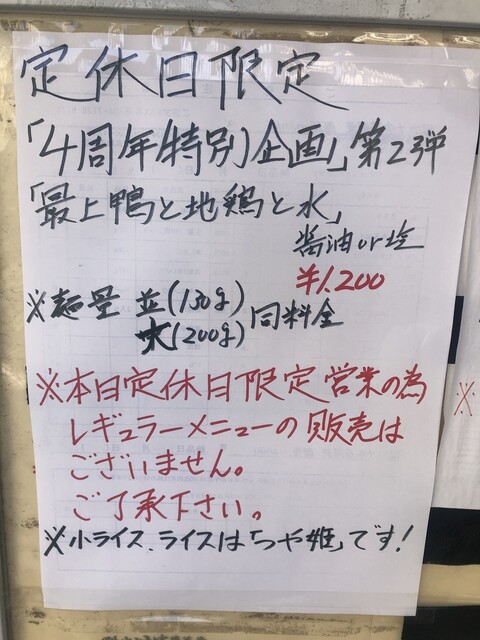 定休日限定
「4周年特別企画」第2弾
「最上鴨と地鶏と水」
醤油or塩
¥1,200
※麺量 並(130g)
大(200g) 同料金
※本日定休日限定営業の為
レギュラーメニューの販売は
ございません。
ご了承下さい。
※小ライス、ライスは「つや姫」です!